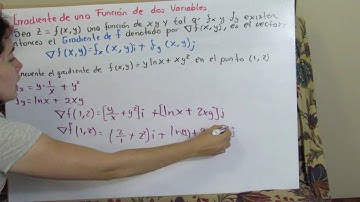 Gradiente de una Función de dos Variables
Sea Z = f(x,y) una función de x y y tal q' fx y fy existen
entonces el Gradiente de f denotado por ∇f(x,y), es el vector
∇f(x,y) = fx(x,y)i + fy(x,y)j
encuentre el gradiente de f(x,y) = y ln x + xy² en el punto (1,2)
= y · 1/x + y²
= ln x + 2xy
∇f(1,2) = [y/x + y²]i + [ln x + 2xy]j
∇f(1,2) = (2/1 + 2²)i + ln(1) +